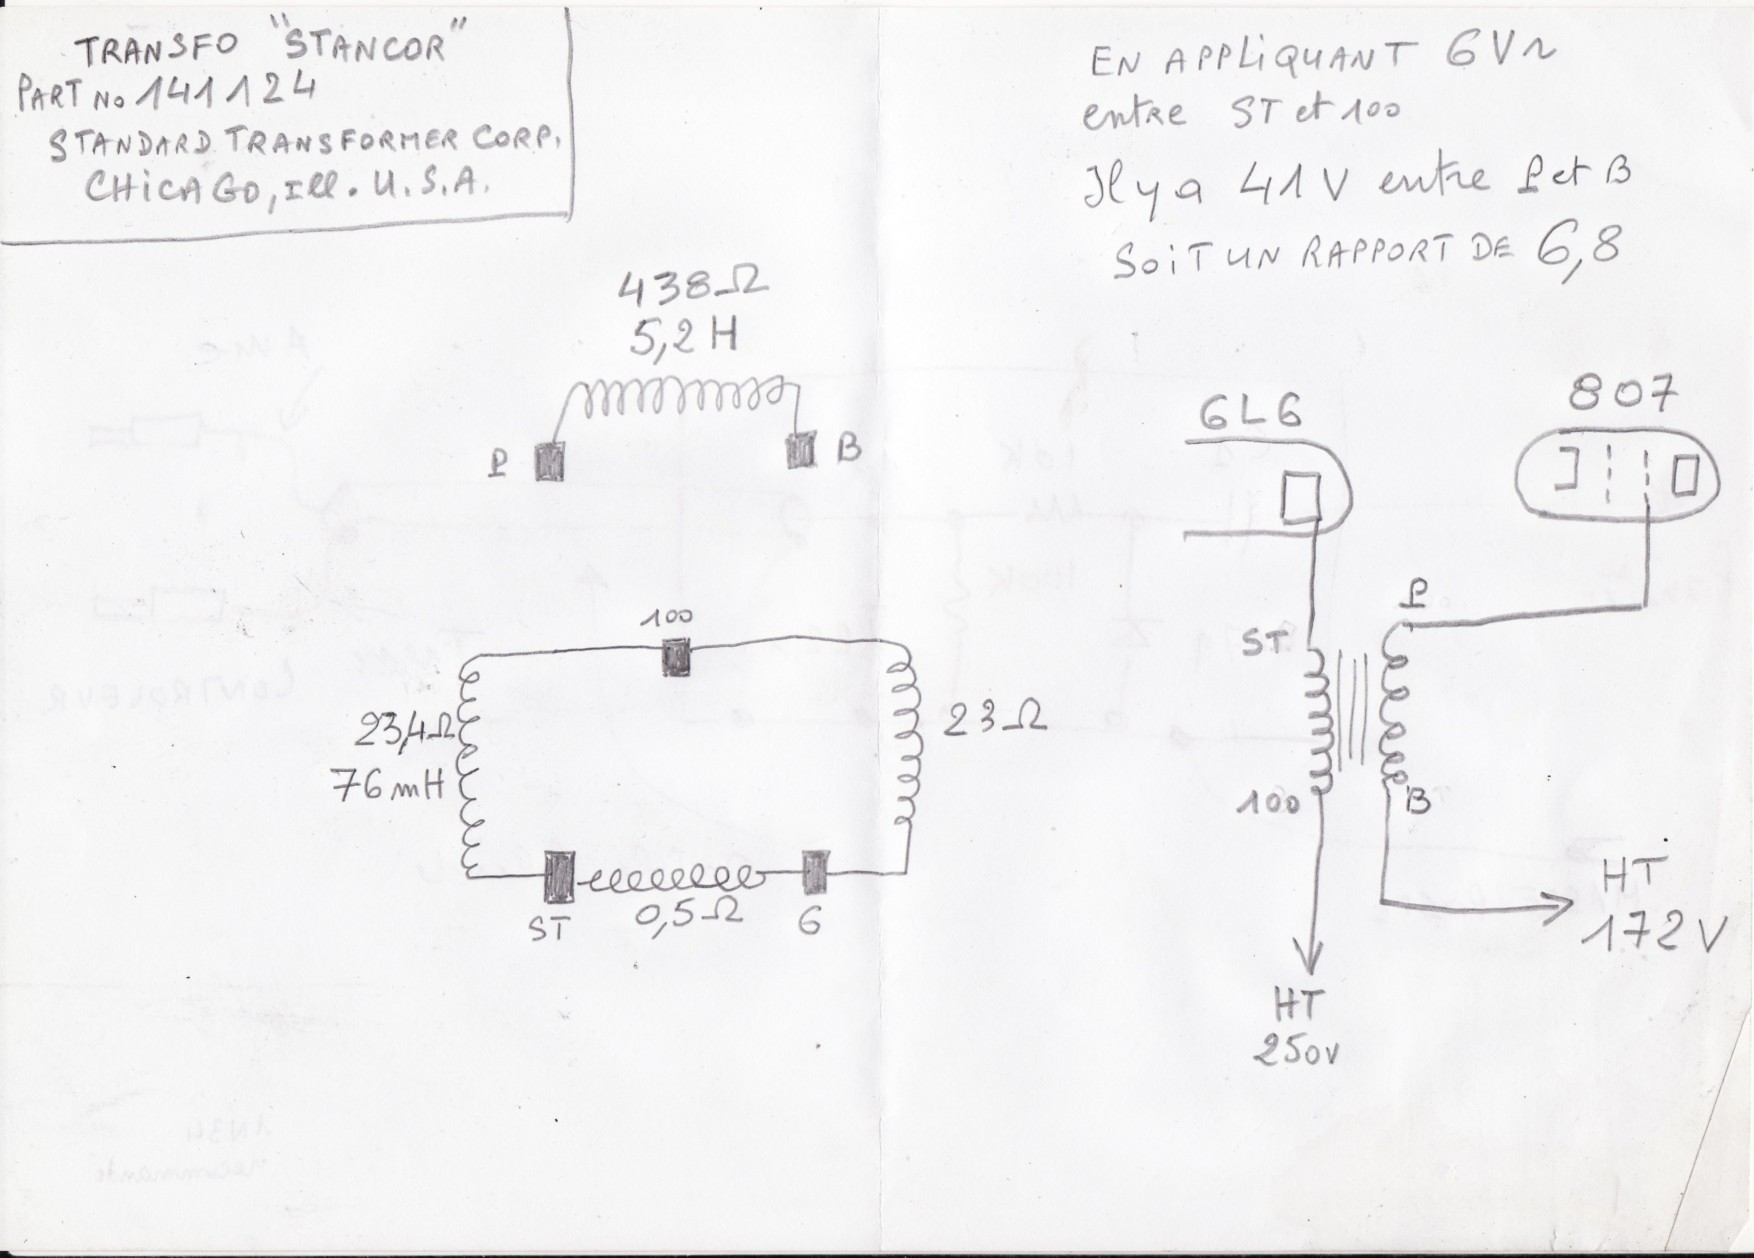 TRANSFO "STANCOR"
PART No 141124
STANDARD TRANSFORMER CORP.
CHICAGO, Ill. U.S.A.
EN APPLIQUANT 6V~
entre ST et 100
Il y a 41 V entre P et B
SOIT UN RAPPORT DE 6,8
438Ω
5,2 H
P
B
100
23,4Ω
76 mH
23Ω
ST
0,5Ω
6
6L6
807
P
ST
100
B
HT
172 V
HT
250V